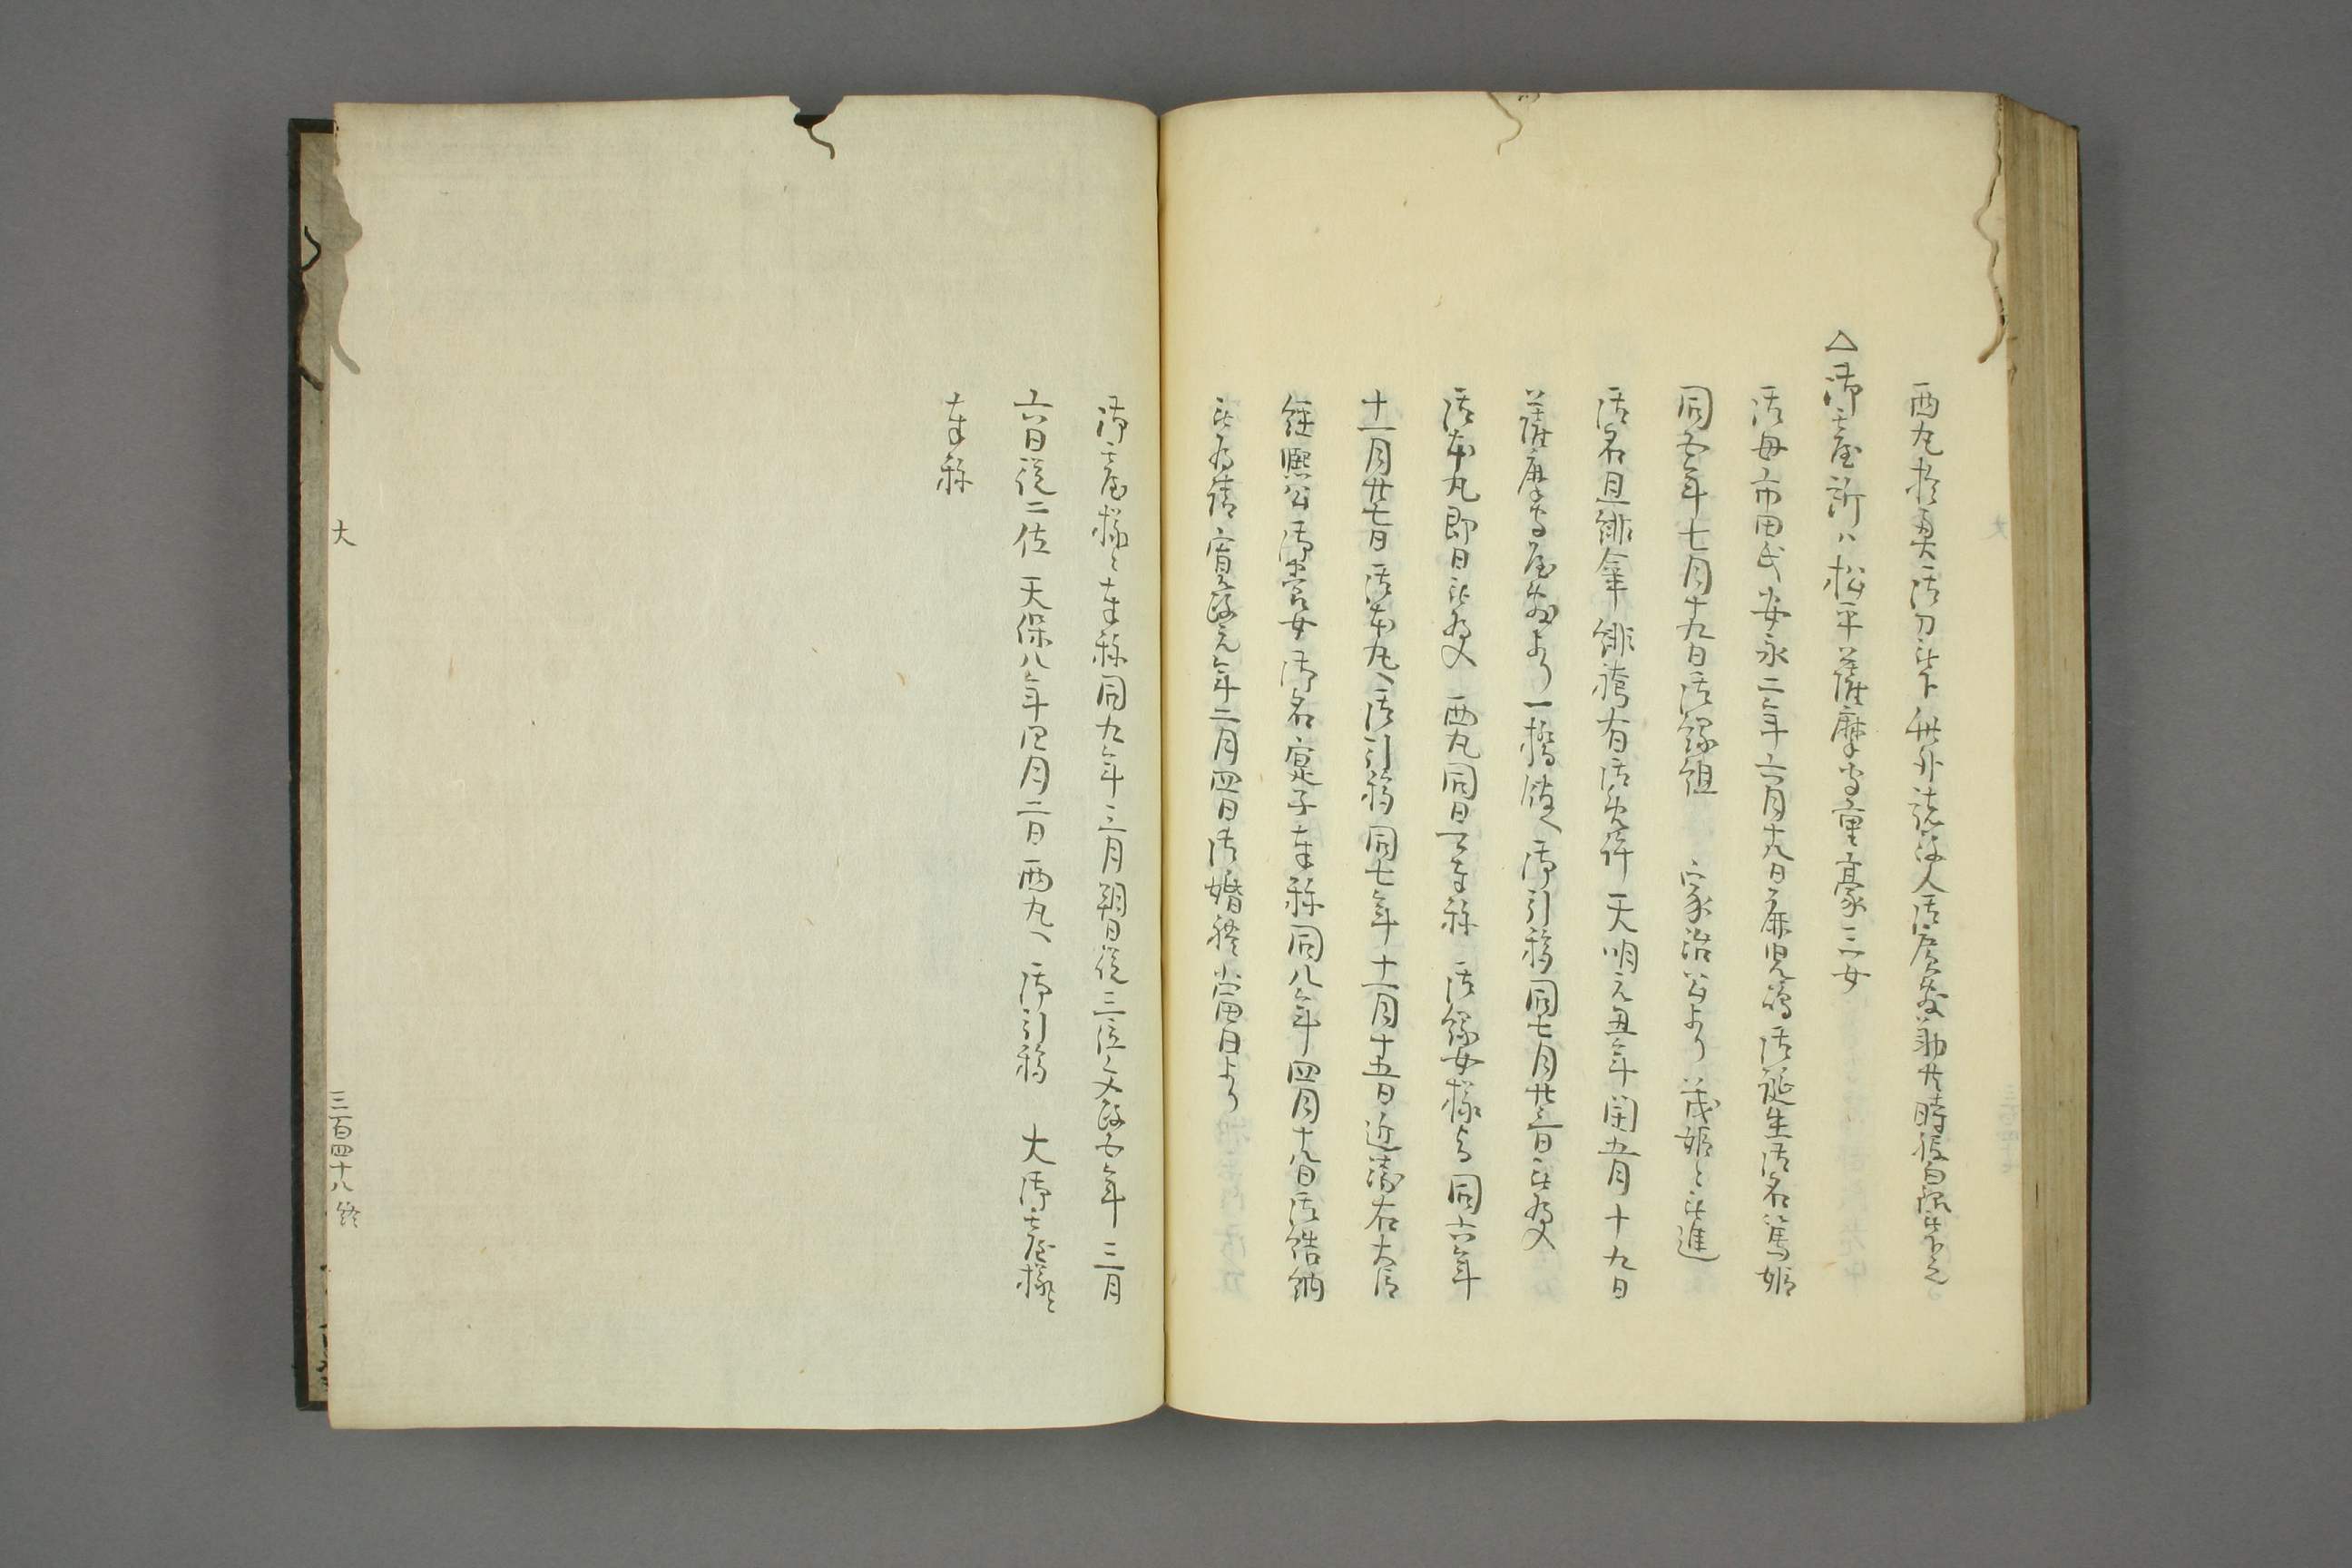 西丸於奥御刀被下無外諸役人御広敷勤共時服白銀被下之
△御台所ハ松平薩摩守重豪三女
御母市田氏安永二年六月十八日鹿児嶋御誕生御名篤姫
同五年七月十九日御縁組 家治公より茂姫と被進
御名且緋傘緋袴有御免許天明元丑年閏五月十九日
薩摩守屋敷より一橋館へ御引移同七月廿三日被為入
御本丸即日被為入西丸同日可奉称御縁女様与同六年
十一月廿七日御本丸へ御引移同七年十一月十五日近衛右大臣
経熙公御養女御名寔子奉称同八年四月十八日御結納
被為請寛政元年二月四日御婚礼当日より
御台様と奉称同九年三月朔日従三位文政五年三月
六日従二位天保八年四月二日西丸へ御引移 大御台様と
奉称
大
三百四十八終